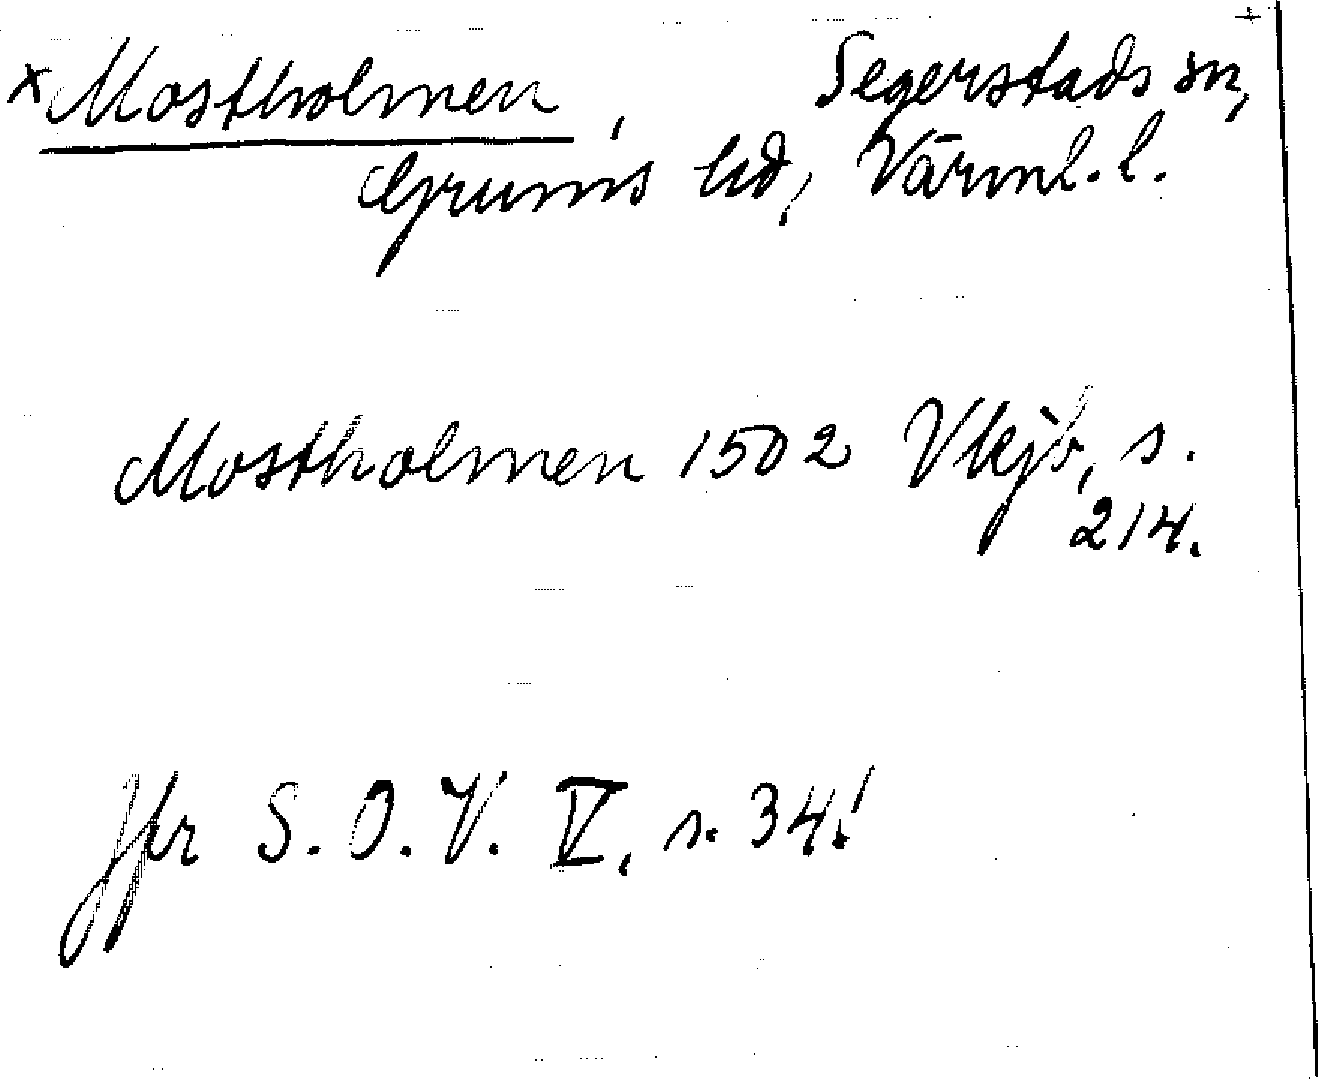 ×Mostholmen, Segerstads sn,
Grums hd, Värml. l.
Mostholmen 1502 Vkjb, s.
214.
Jfr S. O. V. V, s. 34!